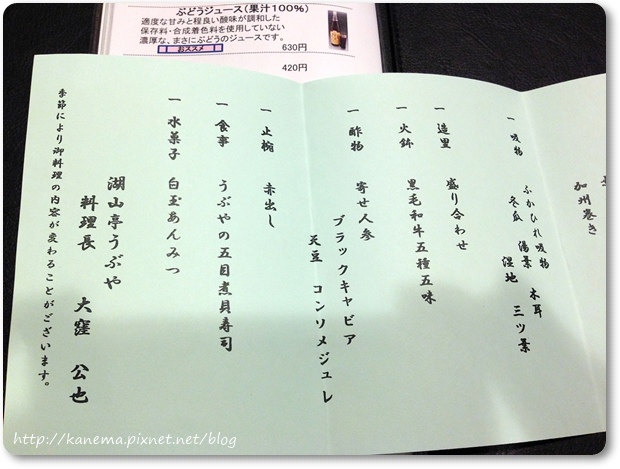 ぶどうジュース(果汁100%)
適度な甘みと程良い酸味が調和した
保存料・合成着色料を使用していない
濃厚な、まさにぶどうのジュースです。
おススメ 630円
420円
加州巻き
一 吸物 ふかひれ吸物 木耳
冬瓜 湯葉 湿地 三ツ葉
一 造里 盛り合わせ
一 火鉢 黒毛和牛五種五味
一 酢物 寄せ人参
ブラックキャビア
天豆 コンソメジュレ
一 止椀 赤出し
一 食事 うぶやの五目煮貝寿司
一 水菓子 白玉あんみつ
湖山亭うぶや
料理長 大窪 公也
季節により御料理の内容が変わることがございます。
http://kanema.pixnet.net/blog